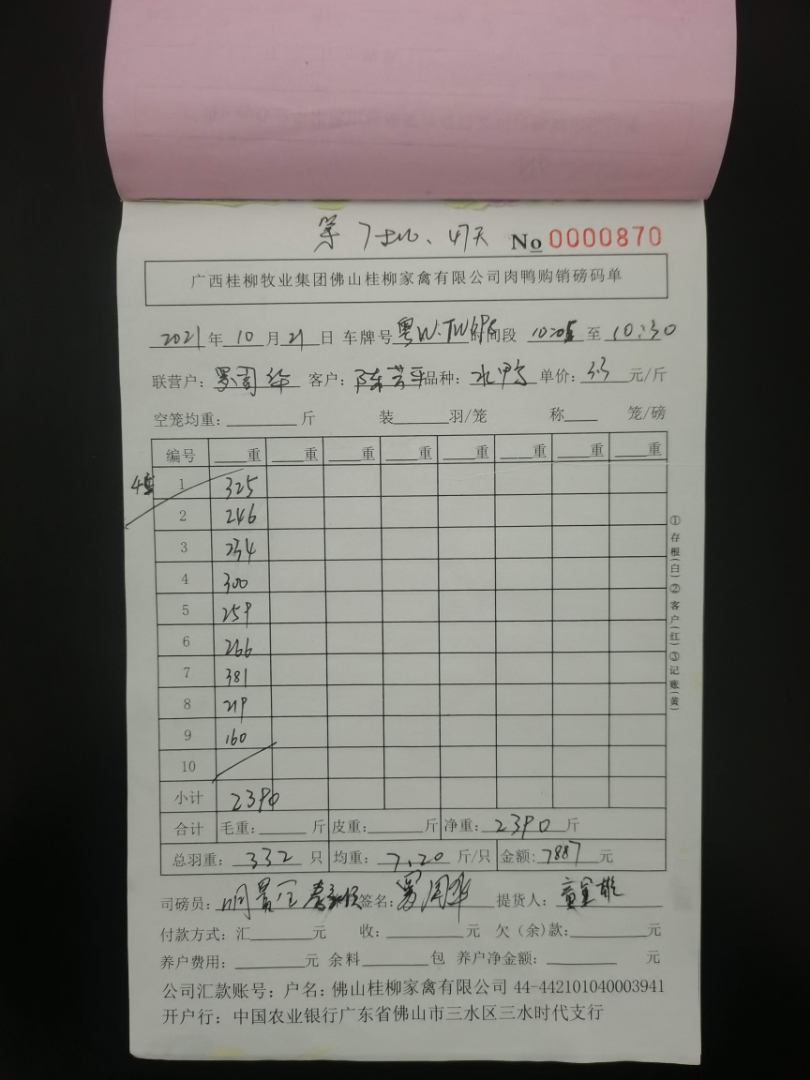 第7批、47天 No 0000870
广西桂柳牧业集团佛山桂柳家禽有限公司肉鸭购销磅码单
2021年10月21日 车牌号 粤W· 时间段 10:05 至 10:30
联营户: 客户: 陈芳平 品种: 水鸭 单价: 3.3 元/斤
空笼均重: 斤 装 羽/笼 称 笼/磅
编号 重 重 重 重 重 重 重 重
1 325
2 246
3 234
4 300
5 259
6 266
7 381
8 219
9 160
10
小计 2390
合计 毛重: 斤 皮重: 斤 净重: 2390 斤
总羽重: 332 只 均重: 7.20 斤/只 金额: 7887 元
司磅员: 签名: 提货人:
付款方式: 汇 元 收: 元 欠(余)款: 元
养户费用: 元 余料 包 养户净金额: 元
公司汇款账号: 户名: 佛山桂柳家禽有限公司 44-442101040003941
开户行: 中国农业银行广东省佛山市三水区三水时代支行
①存根(白)②客户(红)③记账(黄)